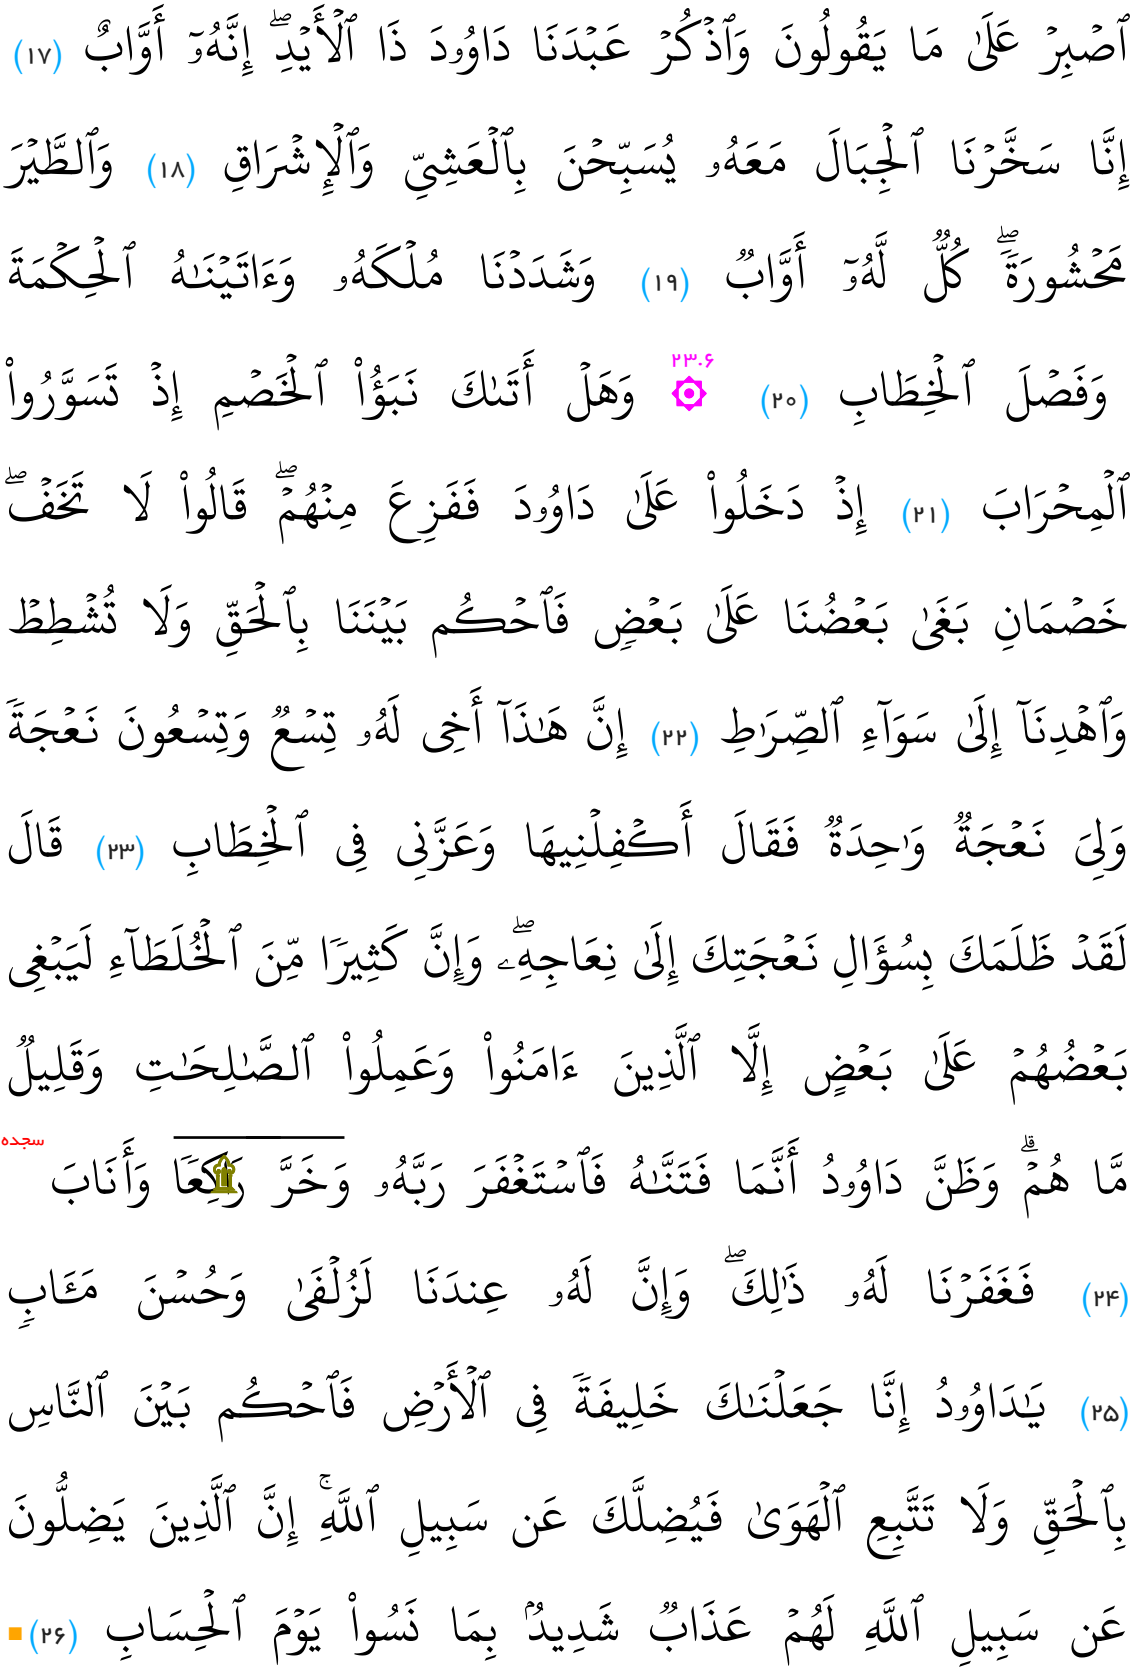 ٱصۡبِرۡ عَلَىٰ مَا يَقُولُونَ وَٱذۡكُرۡ عَبۡدَنَا دَاوُۥدَ ذَا ٱلۡأَيۡدِۖ إِنَّهُۥٓ أَوَّابٌ (۱۷)
إِنَّا سَخَّرۡنَا ٱلۡجِبَالَ مَعَهُۥ يُسَبِّحۡنَ بِٱلۡعَشِيِّ وَٱلۡإِشۡرَاقِ (۱۸) وَٱلطَّيۡرَ
مَحۡشُورَةٗۖ كُلّٞ لَّهُۥٓ أَوَّابٞ (۱۹) وَشَدَدۡنَا مُلۡكَهُۥ وَءَاتَيۡنَٰهُ ٱلۡحِكۡمَةَ
۲۳.۶
وَفَصۡلَ ٱلۡخِطَابِ (۲۰) ۞ وَهَلۡ أَتَىٰكَ نَبَؤُاْ ٱلۡخَصۡمِ إِذۡ تَسَوَّرُواْ
ٱلۡمِحۡرَابَ (۲۱) إِذۡ دَخَلُواْ عَلَىٰ دَاوُۥدَ فَفَزِعَ مِنۡهُمۡۖ قَالُواْ لَا تَخَفۡۖ
خَصۡمَانِ بَغَىٰ بَعۡضُنَا عَلَىٰ بَعۡضٖ فَٱحۡكُم بَيۡنَنَا بِٱلۡحَقِّ وَلَا تُشۡطِطۡ
وَٱهۡدِنَآ إِلَىٰ سَوَآءِ ٱلصِّرَٰطِ (۲۲) إِنَّ هَٰذَآ أَخِي لَهُۥ تِسۡعٞ وَتِسۡعُونَ نَعۡجَةٗ
وَلِيَ نَعۡجَةٞ وَٰحِدَةٞ فَقَالَ أَكۡفِلۡنِيهَا وَعَزَّنِي فِي ٱلۡخِطَابِ (۲۳) قَالَ
لَقَدۡ ظَلَمَكَ بِسُؤَالِ نَعۡجَتِكَ إِلَىٰ نِعَاجِهِۦۖ وَإِنَّ كَثِيرٗا مِّنَ ٱلۡخُلَطَآءِ لَيَبۡغِي
بَعۡضُهُمۡ عَلَىٰ بَعۡضٍ إِلَّا ٱلَّذِينَ ءَامَنُواْ وَعَمِلُواْ ٱلصَّٰلِحَٰتِ وَقَلِيلٞ
مَّا هُمۡۗ وَظَنَّ دَاوُۥدُ أَنَّمَا فَتَنَّٰهُ فَٱسۡتَغۡفَرَ رَبَّهُۥ وَخَرَّۤ رَاكِعٗاۤ وَأَنَابَ سجده
(۲۴) فَغَفَرۡنَا لَهُۥ ذَٰلِكَۖ وَإِنَّ لَهُۥ عِندَنَا لَزُلۡفَىٰ وَحُسۡنَ مَـَٔابٖ
(۲۵) يَٰدَاوُۥدُ إِنَّا جَعَلۡنَٰكَ خَلِيفَةٗ فِي ٱلۡأَرۡضِ فَٱحۡكُم بَيۡنَ ٱلنَّاسِ
بِٱلۡحَقِّ وَلَا تَتَّبِعِ ٱلۡهَوَىٰ فَيُضِلَّكَ عَن سَبِيلِ ٱللَّهِۚ إِنَّ ٱلَّذِينَ يَضِلُّونَ
عَن سَبِيلِ ٱللَّهِ لَهُمۡ عَذَابٞ شَدِيدُۢ بِمَا نَسُواْ يَوۡمَ ٱلۡحِسَابِ (۲۶)